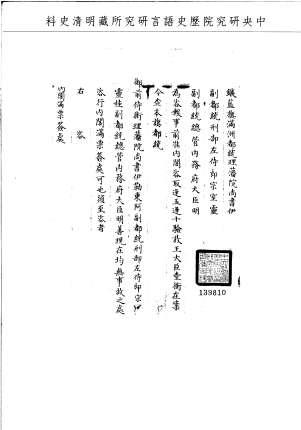 中央研究院歷史語言研究所藏明清史料
鑲藍旗滿洲都統理藩院尚書伊
副都統刑部左侍郎宗室靈
副都統總管內務府大臣明
為咨報事前准內閣咨取逢五逢十驗放王大臣銜在案
今查本旗都統
御前侍衛理藩院尚書伊勒東阿副都統刑部左侍郎宗室
靈桂副都統總管內務府大臣明善現在均無事故之處
咨行內閣滿票簽處可也須至咨者
右咨
內閣滿票簽處
139810